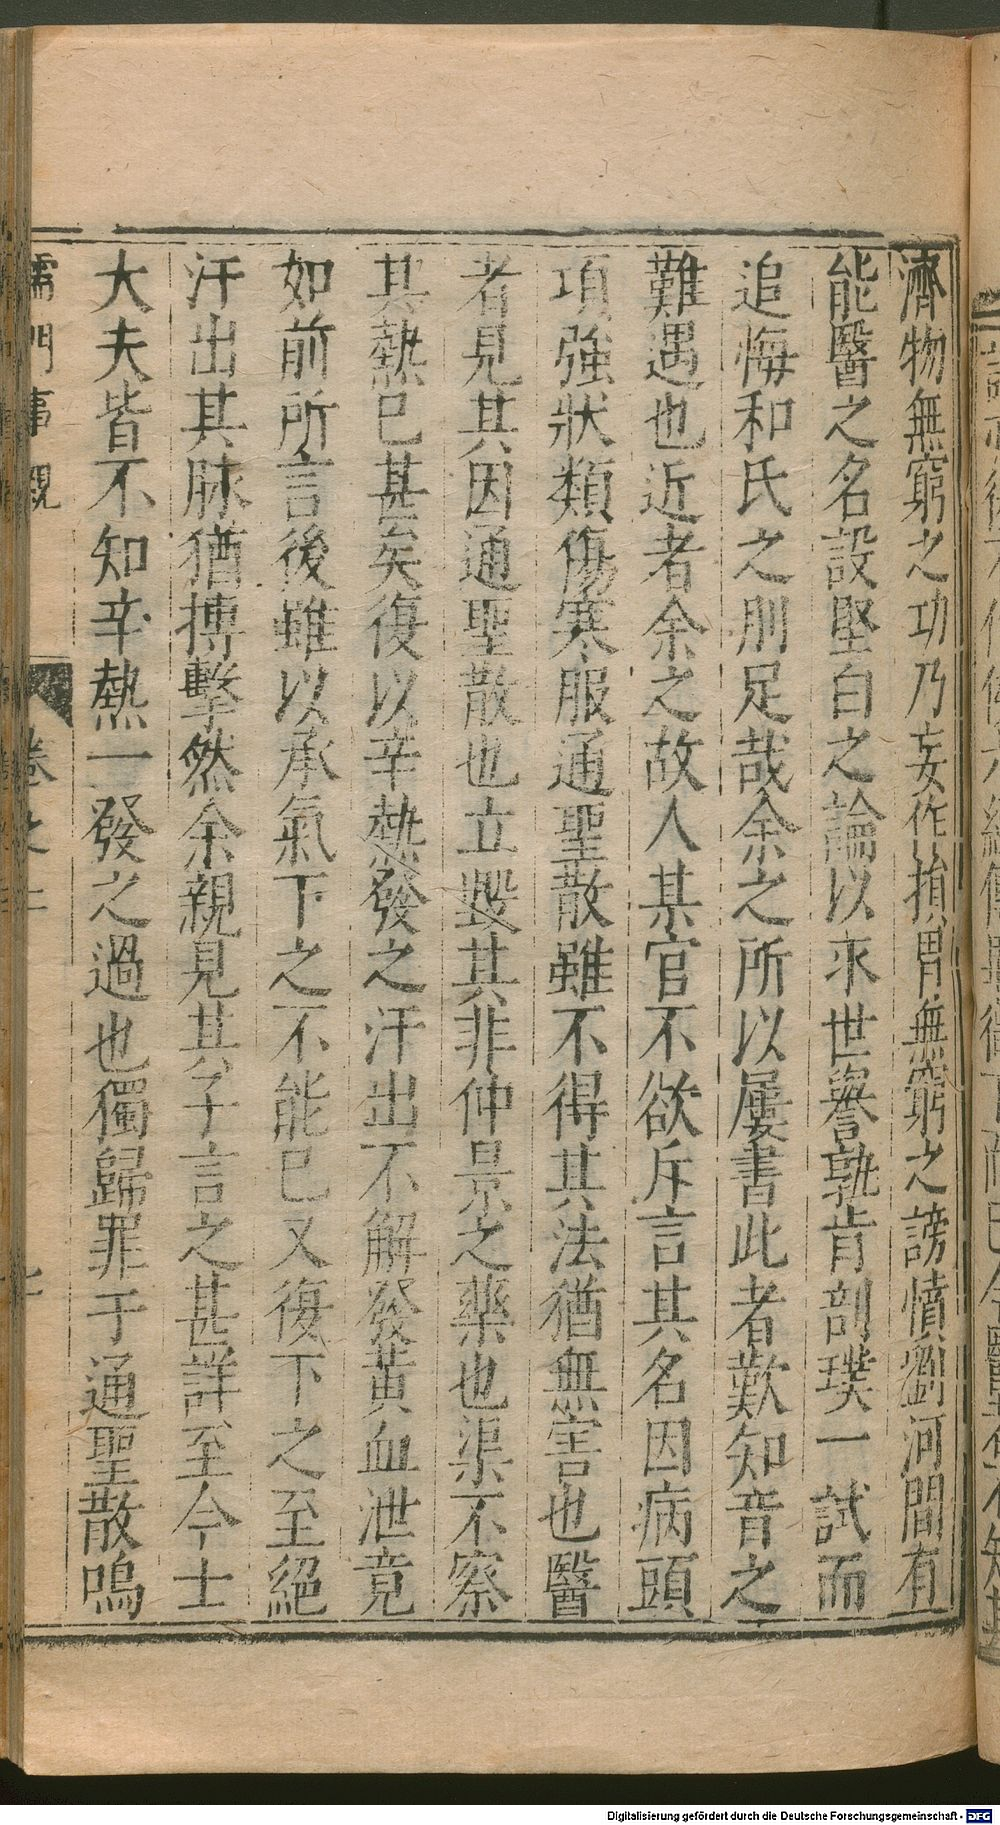 濟物無窮之功乃妄作損胃無窮之謗憤劉河間有
能醫之名設堅白之論以求世譽孰肯剖璞一試而
追悔和氏之刖足哉余之所以屢書此者歎知音之
難遇也近者余之故人某官不欲斥言其名因病頭
項強狀類傷寒服通聖散雖不得其法猶無害也醫
者見其因通聖散也立毀其非仲景之藥也渠不察
其熱已甚矣復以辛熱發之汗出不解發黃血泄竟
如前所言後雖以承氣下之不能已又復下之至絕
汗出其脉猶搏擊然余親見其子言之甚詳至今士
大夫皆不知辛熱一發之過也獨歸罪于通聖散嗚
儒門事親
卷之二
Digitalisierung gefördert durch die Deutsche Forschungsgemeinschaft - DFG